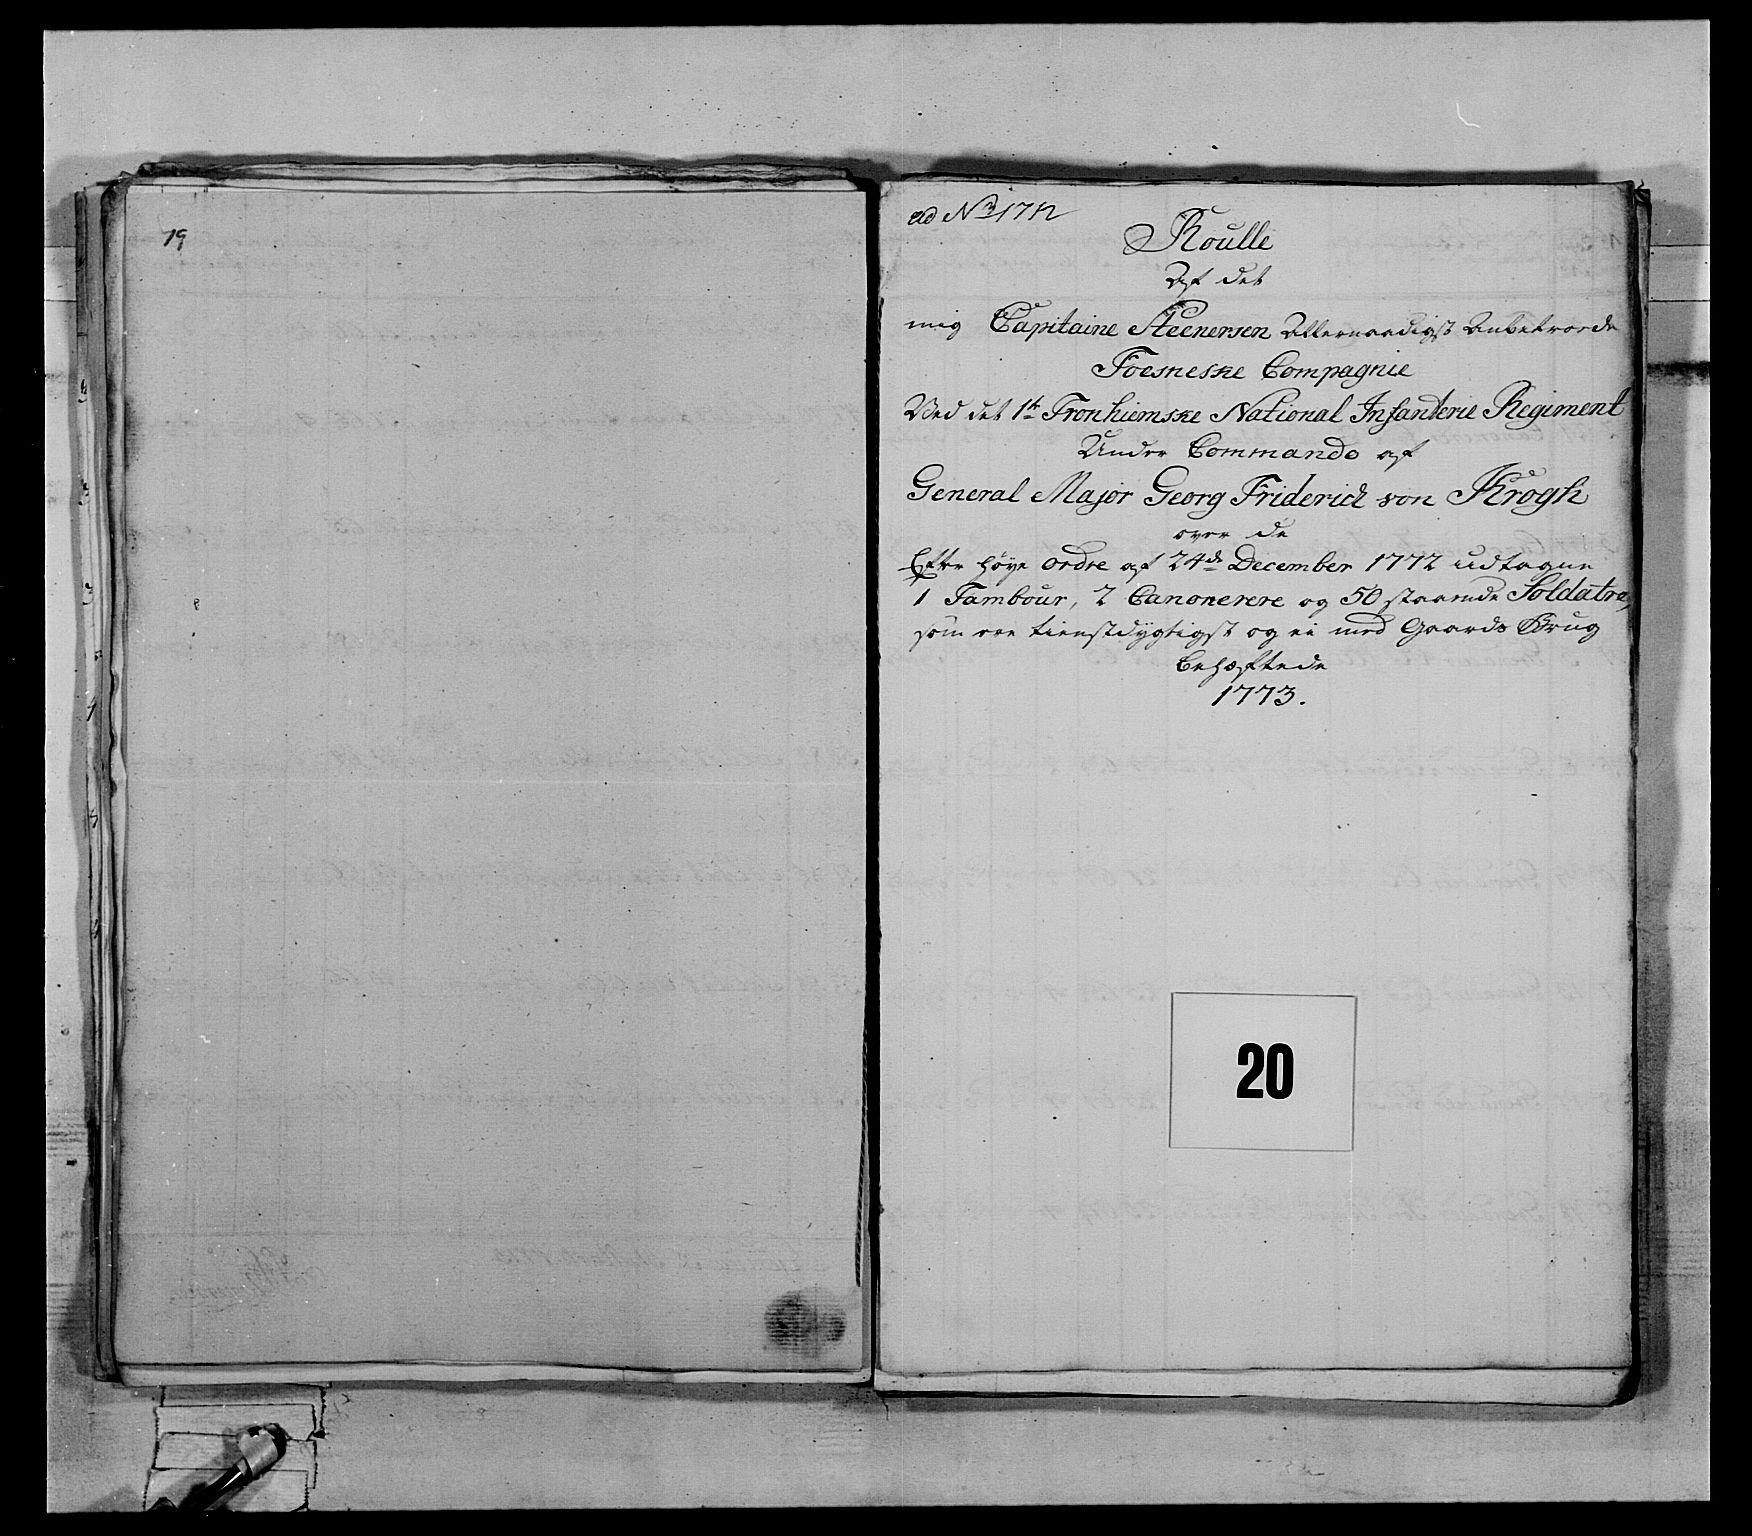 19
ad No 1712
Roulle
Af det
mig Capitaine Steenersen Allernaadigst Anbetroede
Foesneske Compagnie
Ved det 1te Tronhiemske National Infanterie Regiment
Under Commando af
General Major Georg Friderich von Krogh
over de
Efter høye ordre af 24de December 1772 udtagne
1 Tambour, 2 Canonerere og 50 staaende Soldatre,
som ere tienstdygtigst og ei med Gaards Brug
behæftede
1773.
20